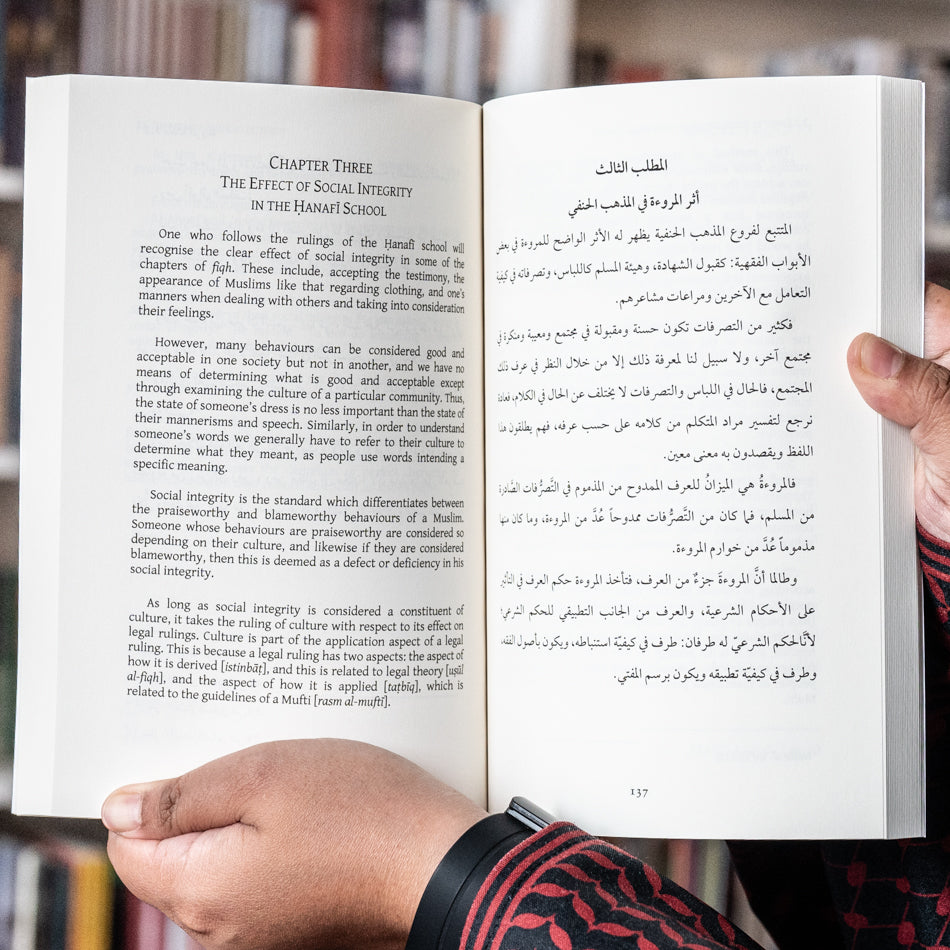 CHAPTER THREE
THE EFFECT OF SOCIAL INTEGRITY
IN THE ḤANAFĪ SCHOOL
One who follows the rulings of the Ḥanafī school will
recognise the clear effect of social integrity in some of the
chapters of fiqh. These include, accepting the testimony, the
appearance of Muslims like that regarding clothing, and one's
manners when dealing with others and taking into consideration
their feelings.
However, many behaviours can be considered good and
acceptable in one society but not in another, and we have no
means of determining what is good and acceptable except
through examining the culture of a particular community. Thus,
the state of someone's dress is no less important than the state of
their mannerisms and speech. Similarly, in order to understand
someone's words we generally have to refer to their culture to
determine what they meant, as people use words intending a
specific meaning.
Social integrity is the standard which differentiates between
the praiseworthy and blameworthy behaviours of a Muslim.
Someone whose behaviours are praiseworthy are considered so
depending on their culture, and likewise if they are considered
blameworthy, then this is deemed as a defect or deficiency in his
social integrity.
As long as social integrity is considered a constituent of
culture, it takes the ruling of culture with respect to its effect on
legal rulings. Culture is part of the application aspect of a legal
ruling. This is because a legal ruling has two aspects: the aspect of
how it is derived [istinbāṭ], and this is related to legal theory [uṣūl
al-fiqh], and the aspect of how it is applied [taṭbīq], which is
related to the guidelines of a Mufti [rasm al-muftī].
المطلب الثالث
أثر المروءة في المذهب الحنفي
المتتبع لفروع المذهب الحنفية يظهر له الأثر الواضح للمروءة في بعض
الأبواب الفقهية: كقبول الشهادة، وهيئة المسلم كاللباس، وتصرفاته في كيفية
التعامل مع الآخرين ومراعات مشاعرهم.
فكثير من التصرفات تكون حسنة ومقبولة في مجتمع ومعيبة ومنكرة في
مجتمع آخر، ولا سبيل لنا لمعرفة ذلك إلا من خلال النظر في عرف ذلك
المجتمع، فالحال في اللباس والتصرفات لا يختلف عن الحال في الكلام، فعادة
نرجع لتفسير مراد المتكلم من كلامه على حسب عرفه، فهم يطلقون هذا
اللفظ ويقصدون به معنى معين.
فالمروءةُ هي الميزانُ للعرف الممدوح من المذموم في التَّصرُّفات الصَّادرة
من المسلم، فما كان من التَّصرُّفات ممدوحاً عُدَّ من المروءة، وما كان منها
مذموماً عُدَّ من خوارم المروءة.
وطالما أنَّ المروءةَ جزءٌ من العرف، فتأخذ المروءة حكم العرف في التأثير
على الأحكام الشرعية، والعرف من الجانب التطبيقي للحكم الشرعي؛
لأنَّالحكم الشرعيّ له طرفان: طرف في كيفيّة استنباطه، ويكون بأصول الفقه،
وطرف في كيفيّة تطبيقه ويكون برسم المفتي.
137